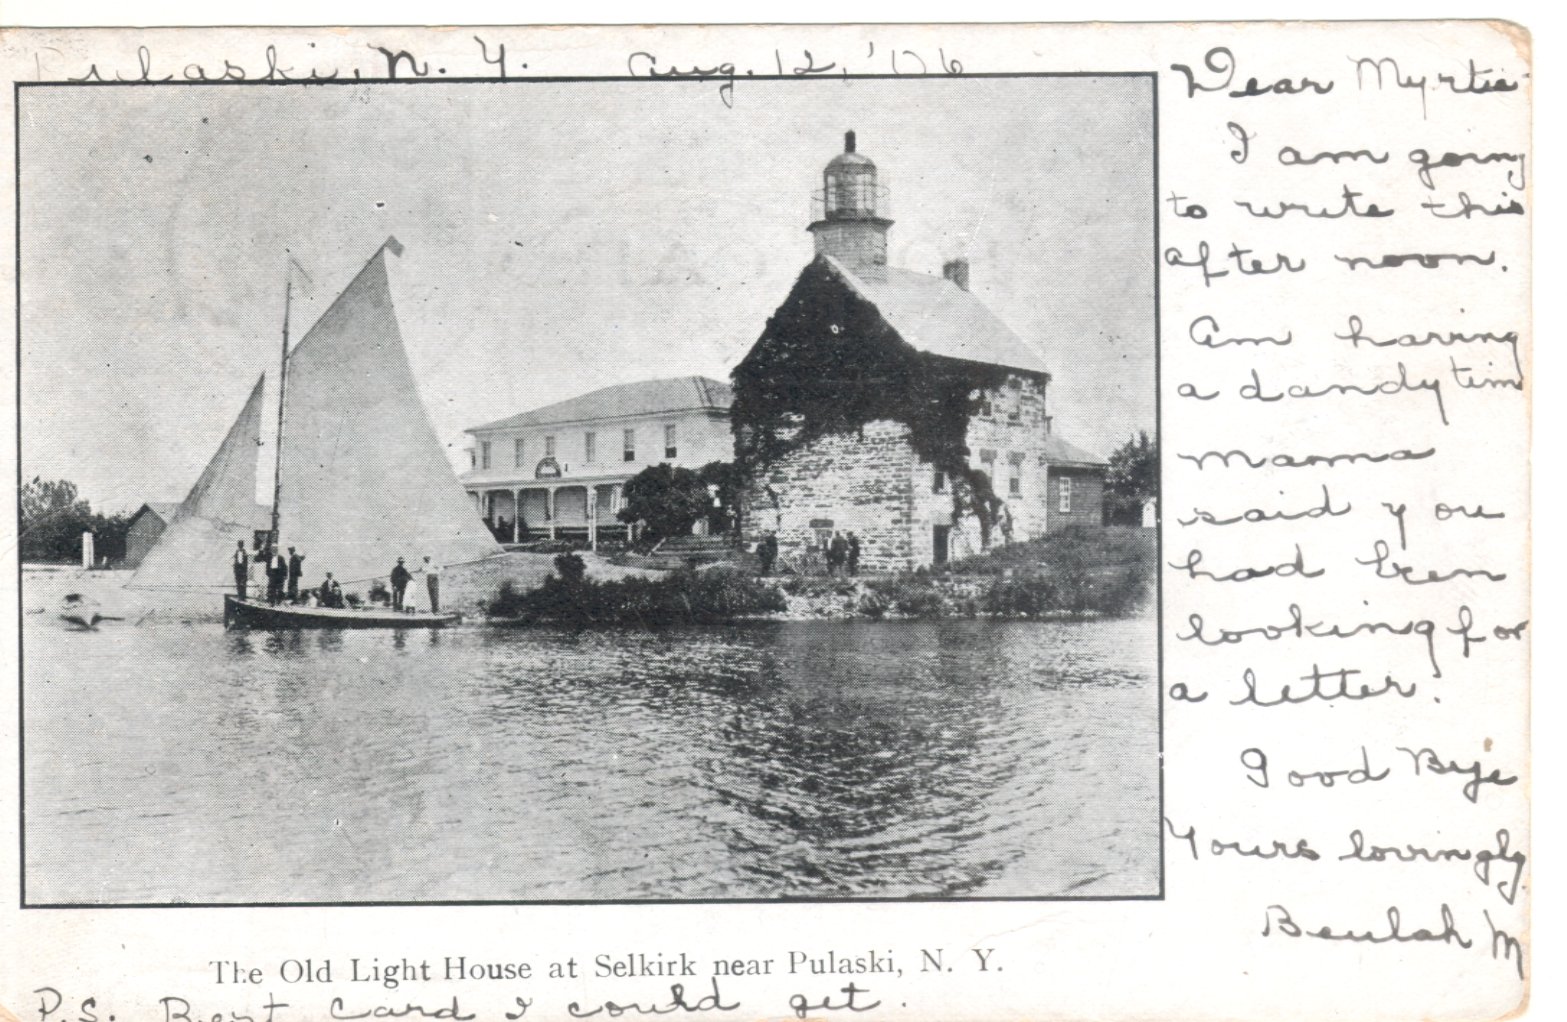 Pulaski, N. Y. Aug. 12, '06
Dear Myrtie-
I am going
to write this
after noon.
Am having
a dandy tim
mama
said you
had been
looking for
a letter.
Good Bye
Yours lovingly
Beulah M
The Old Light House at Selkirk near Pulaski, N. Y.
P.S. Best Card I could get.